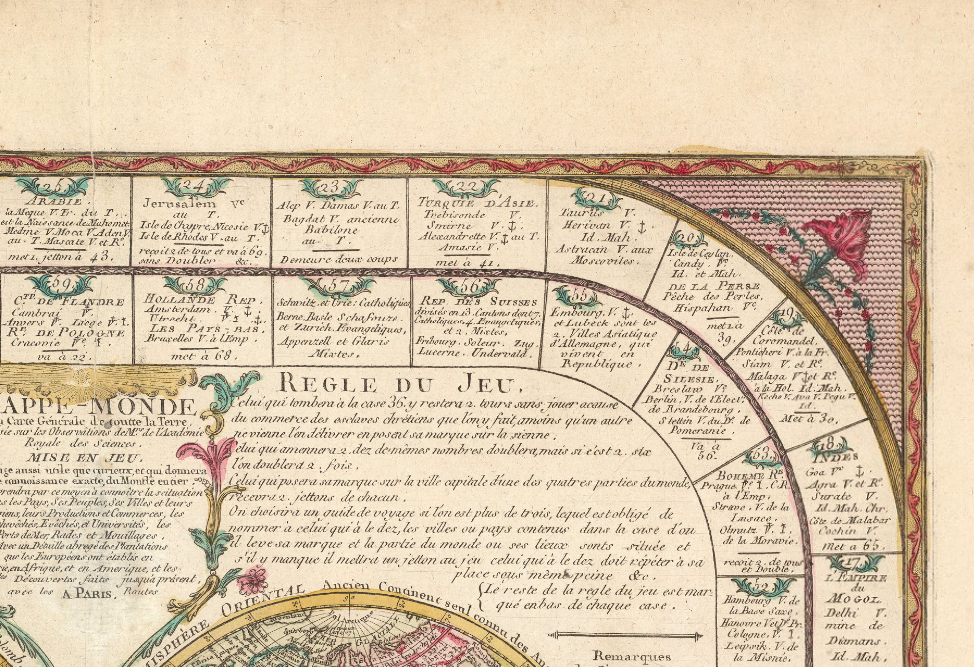 25
ARABIE
la Meque V. Fr. du T...
est la Naissance de Mahomet
Medine V. Moca V. Aden V.
au T. Mascate V. et Rᵉ.
met 1. jetton à 43.
24
Jerusalem Vᵉ
au T.
Isle de Chypre, Nicosie V.
Isle de Rhodes V. au T.
reçoit 2 de tous et va à 69.
sans Doubler &c.
23
Alep V. Damas V. au T.
Bagdat V. ancienne
Babilone
au T.
Demeure deux coups
22
TURQUIE D'ASIE.
Trebisonde V.
Smirne V.
Alexandrette V. au T.
Amasie V.
met à 41.
21
Taurus V.
Herivan V.
Id. Mah.
Astracan V. aux
Moscovites.
20
Isle de Ceylan,
Candy. Vᵉ
Id. et Mah.
DE LA PERSE
Pêche des Perles,
Hispahan Vᵉ
met 2 à
39.
19
Côte de
Coromandel,
Ponticheri V. à la Fr.
Siam V. et Rᵉ.
Malaga V. et Rᵉ.
à la Hol. Id. Mah.
Met à 30,
18
INDES
Goa Vᵉ
Agra V. et Rᵉ
Surate V.
Id. Mah. Chr.
Côte de Malabar
Cochin V.
met à 65.
17
L'EMPIRE
DU
MOGOL
Delhi V.
mine de
Diamans.
Id. Mah.
59
Cᵀᴱ DE FLANDRE
Cambrai Vᵉ
Anvers V. Liège Vᵉ 1.
Rᵉ DE POLOGNE
Cracovie Vᵉ
va à 22.
58
HOLLANDE REP.
Amsterdam.
Utrecht V. 1
LES PAYS-BAS,
Bruxelles V. à l'Emp.
met à 68.
57
Schwitz, et Urie: Catholiques,
Berne, Basle Schafouze.
et Zurich. Evangelique,
Appenzell et Glaris
Mixtes.
56
REP. DES SUISSES
divisés en 13. Cantons dont 7.
Catholiques, 4. Evangeliques,
et 2. Mixtes,
Fribourg. Soleur. Zug.
Lucerne. Undervald.
55
Embourg. V.
et Lubeck sont les
Villes Asiatique
d'Allemagne, qui
vivent en
Republique.
54
Dᴱ DE
SILESIE.
Breslaw Vᵉ
Berlin, V. de l'Elect.
de Brandebourg.
Stettin V. du Dᴱ de
Pomeranie.
Va à
56.
53
BOHEME R.
Prague, Vᵉ 1. C.R.
à l'Emp.
Lusace.
Olmutz V.
de la Moravie.
reçoit 2. de tous
et Double.
52
Hambourg V. de
la Basse Saxe,
Cologne, V. 1.
Leipsik. V. de
la Misnie.
APPE-MONDE
Carte Générale de toutte la Terre.
sur les Observations de Mʳˢ de l'Academie
Royale des Sciences.
MISE EN JEU.
aussi utile que curieux, et qui donnera
connoissance exacte, du Monde entier.
prendra par ce moyen à connoitre la situation
les Pays, Ses Peuples, Ses Villes et leurs
leurs Productions et Commerces, les
Evêchés et Universités, les
Ports de Mer, Rades et Mouillages.
Avec un Détaille abregé des Plantations
que les Européens ont établis en
en Afrique, et en Amerique, et les
Découvertes faitte jusqu'a présent,
avec les Routes
A PARIS.
REGLE DU JEU,
Celui qui tombera à la case 36. y restera 2. tours sans jouer à cause
du commerce des esclaves chrétiens que l'on y fait, amoins qu'un autre
ne vienne l'en délivrer en posent sa marque sur la sienne.
Celui qui amennera 2. dez de mêmes nombres doublera, mais si c'est 2. six
l'on doublera 2. fois.
Celui qui posera sa marque sur la ville capitale d'une des quatres parties du monde,
recevra 2. jettons de chacun.
On choisira un guide de voyage si l'on est plus de trois, lequel est obligé de
nommer à celui qui à le dez, les villes ou pays contenus dans la case d'ou
il leve sa marque et la partie du monde ou ses lieux sonts située et
s'il y manque il mettra un jetton au jeu celui qui à le dez doit répéter à sa
place sous même peine &c.
Le reste de la regle du jeu est mar-
qué en bas de chaque case.
HEMISPHÈRE ORIENTAL
Ancien Continent seul connu des An
Remarques